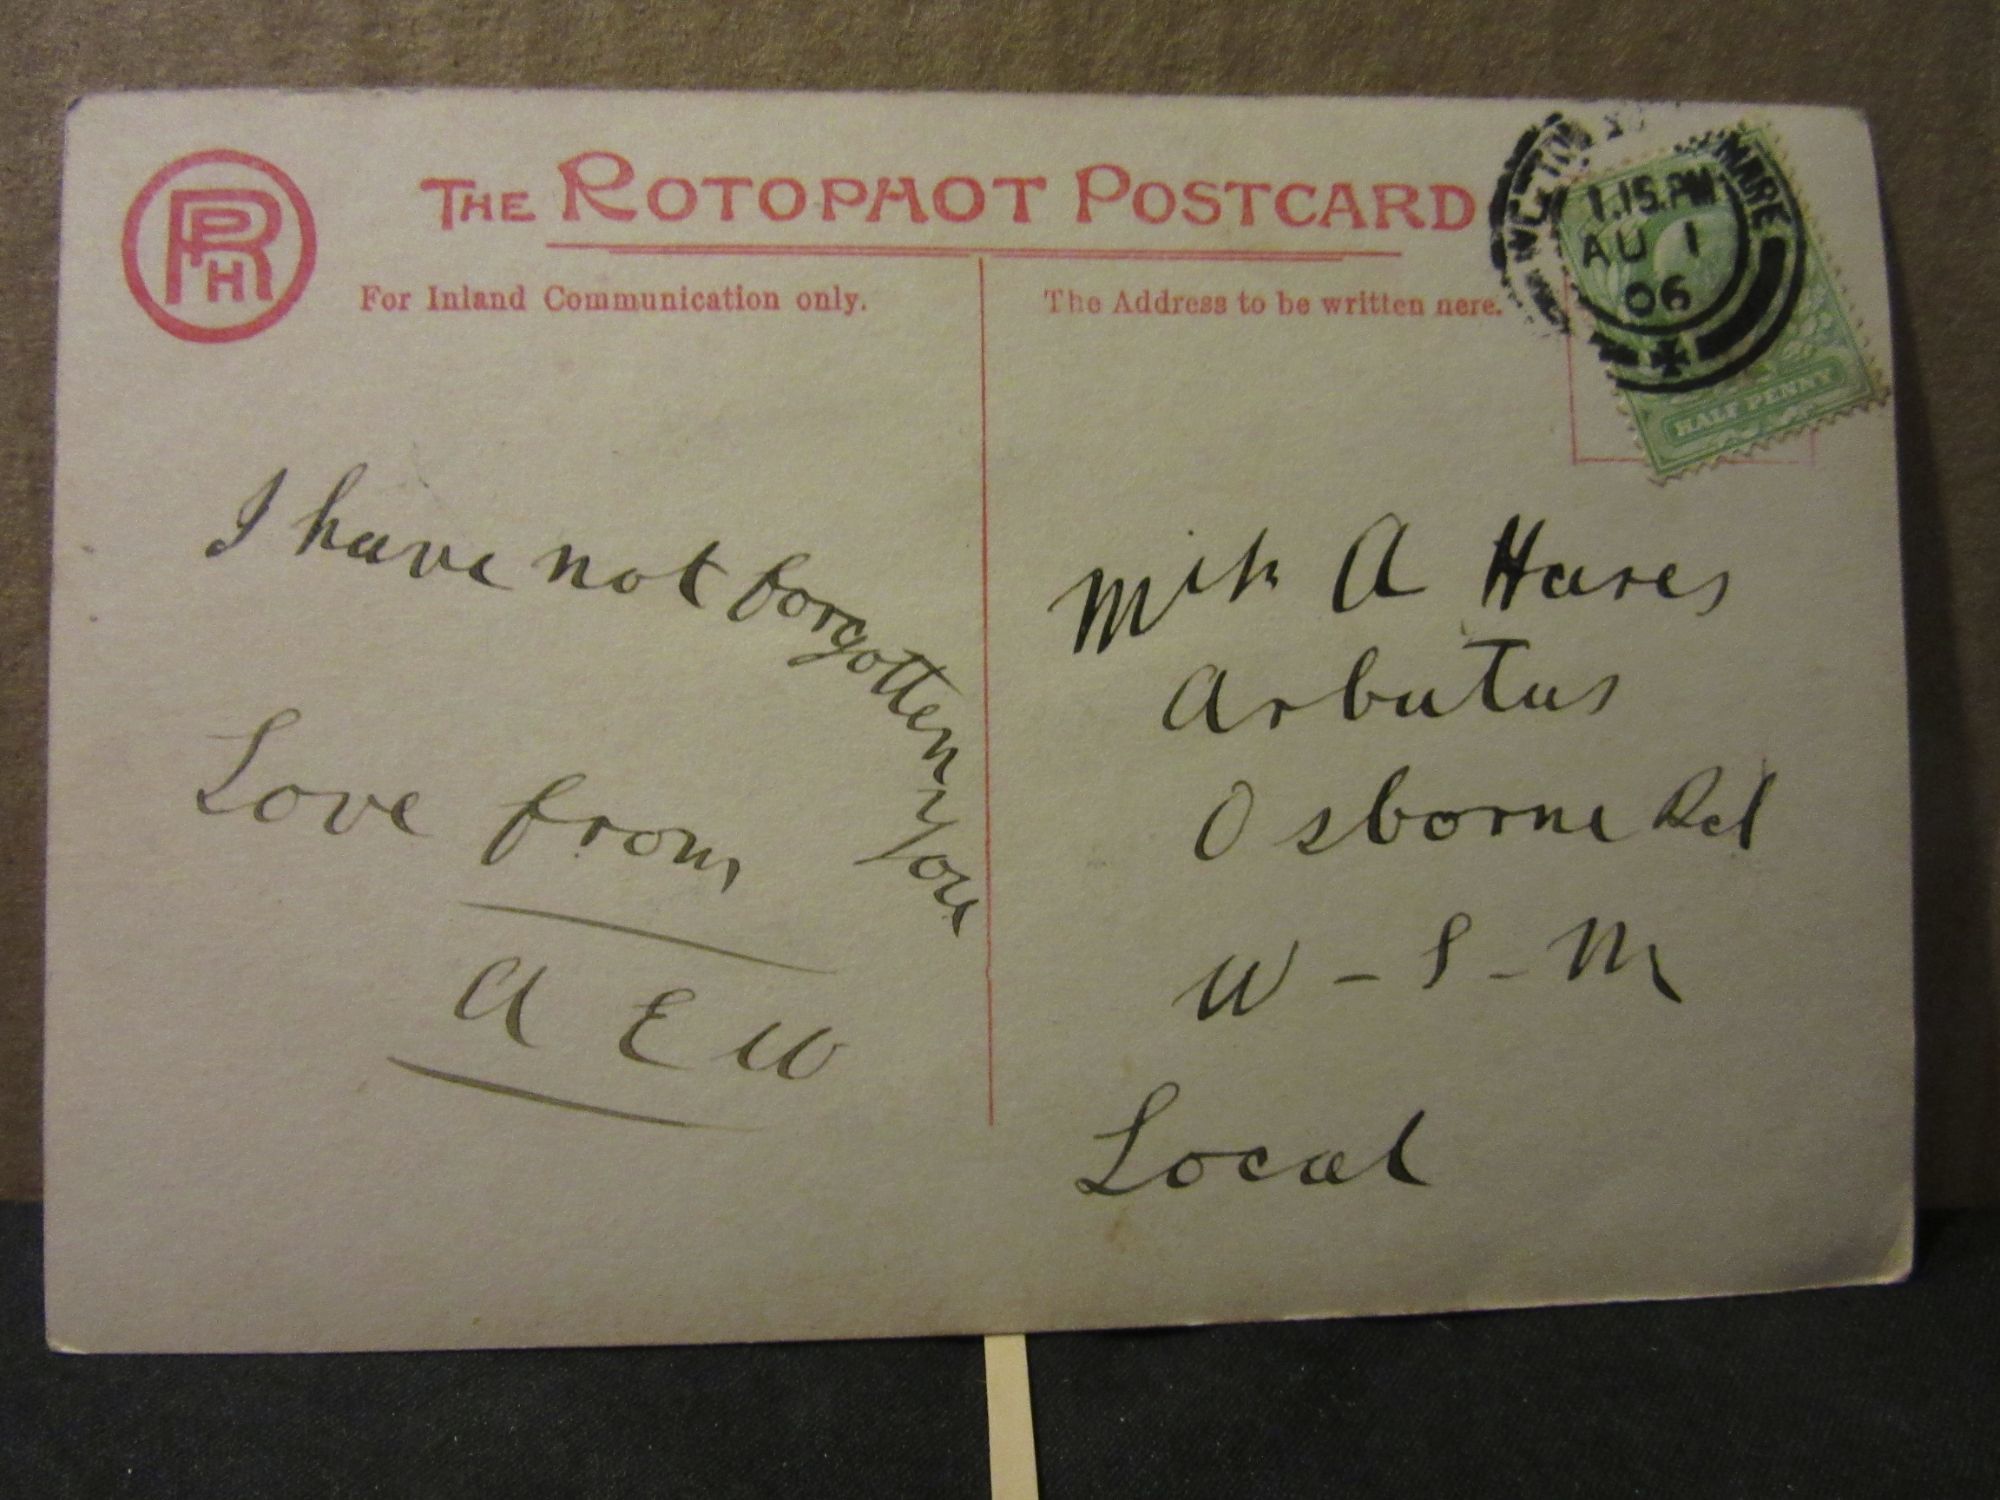 RPH
THE ROTOPHOT POSTCARD
For Inland Communication only.
The Address to be written here.
1.15.PM
AU 1
06
HALF PENNY
I have not forgotten you
Love from
A E W
Miss A Hares
Arbutus
Osborne Rd
W - S - M
Local